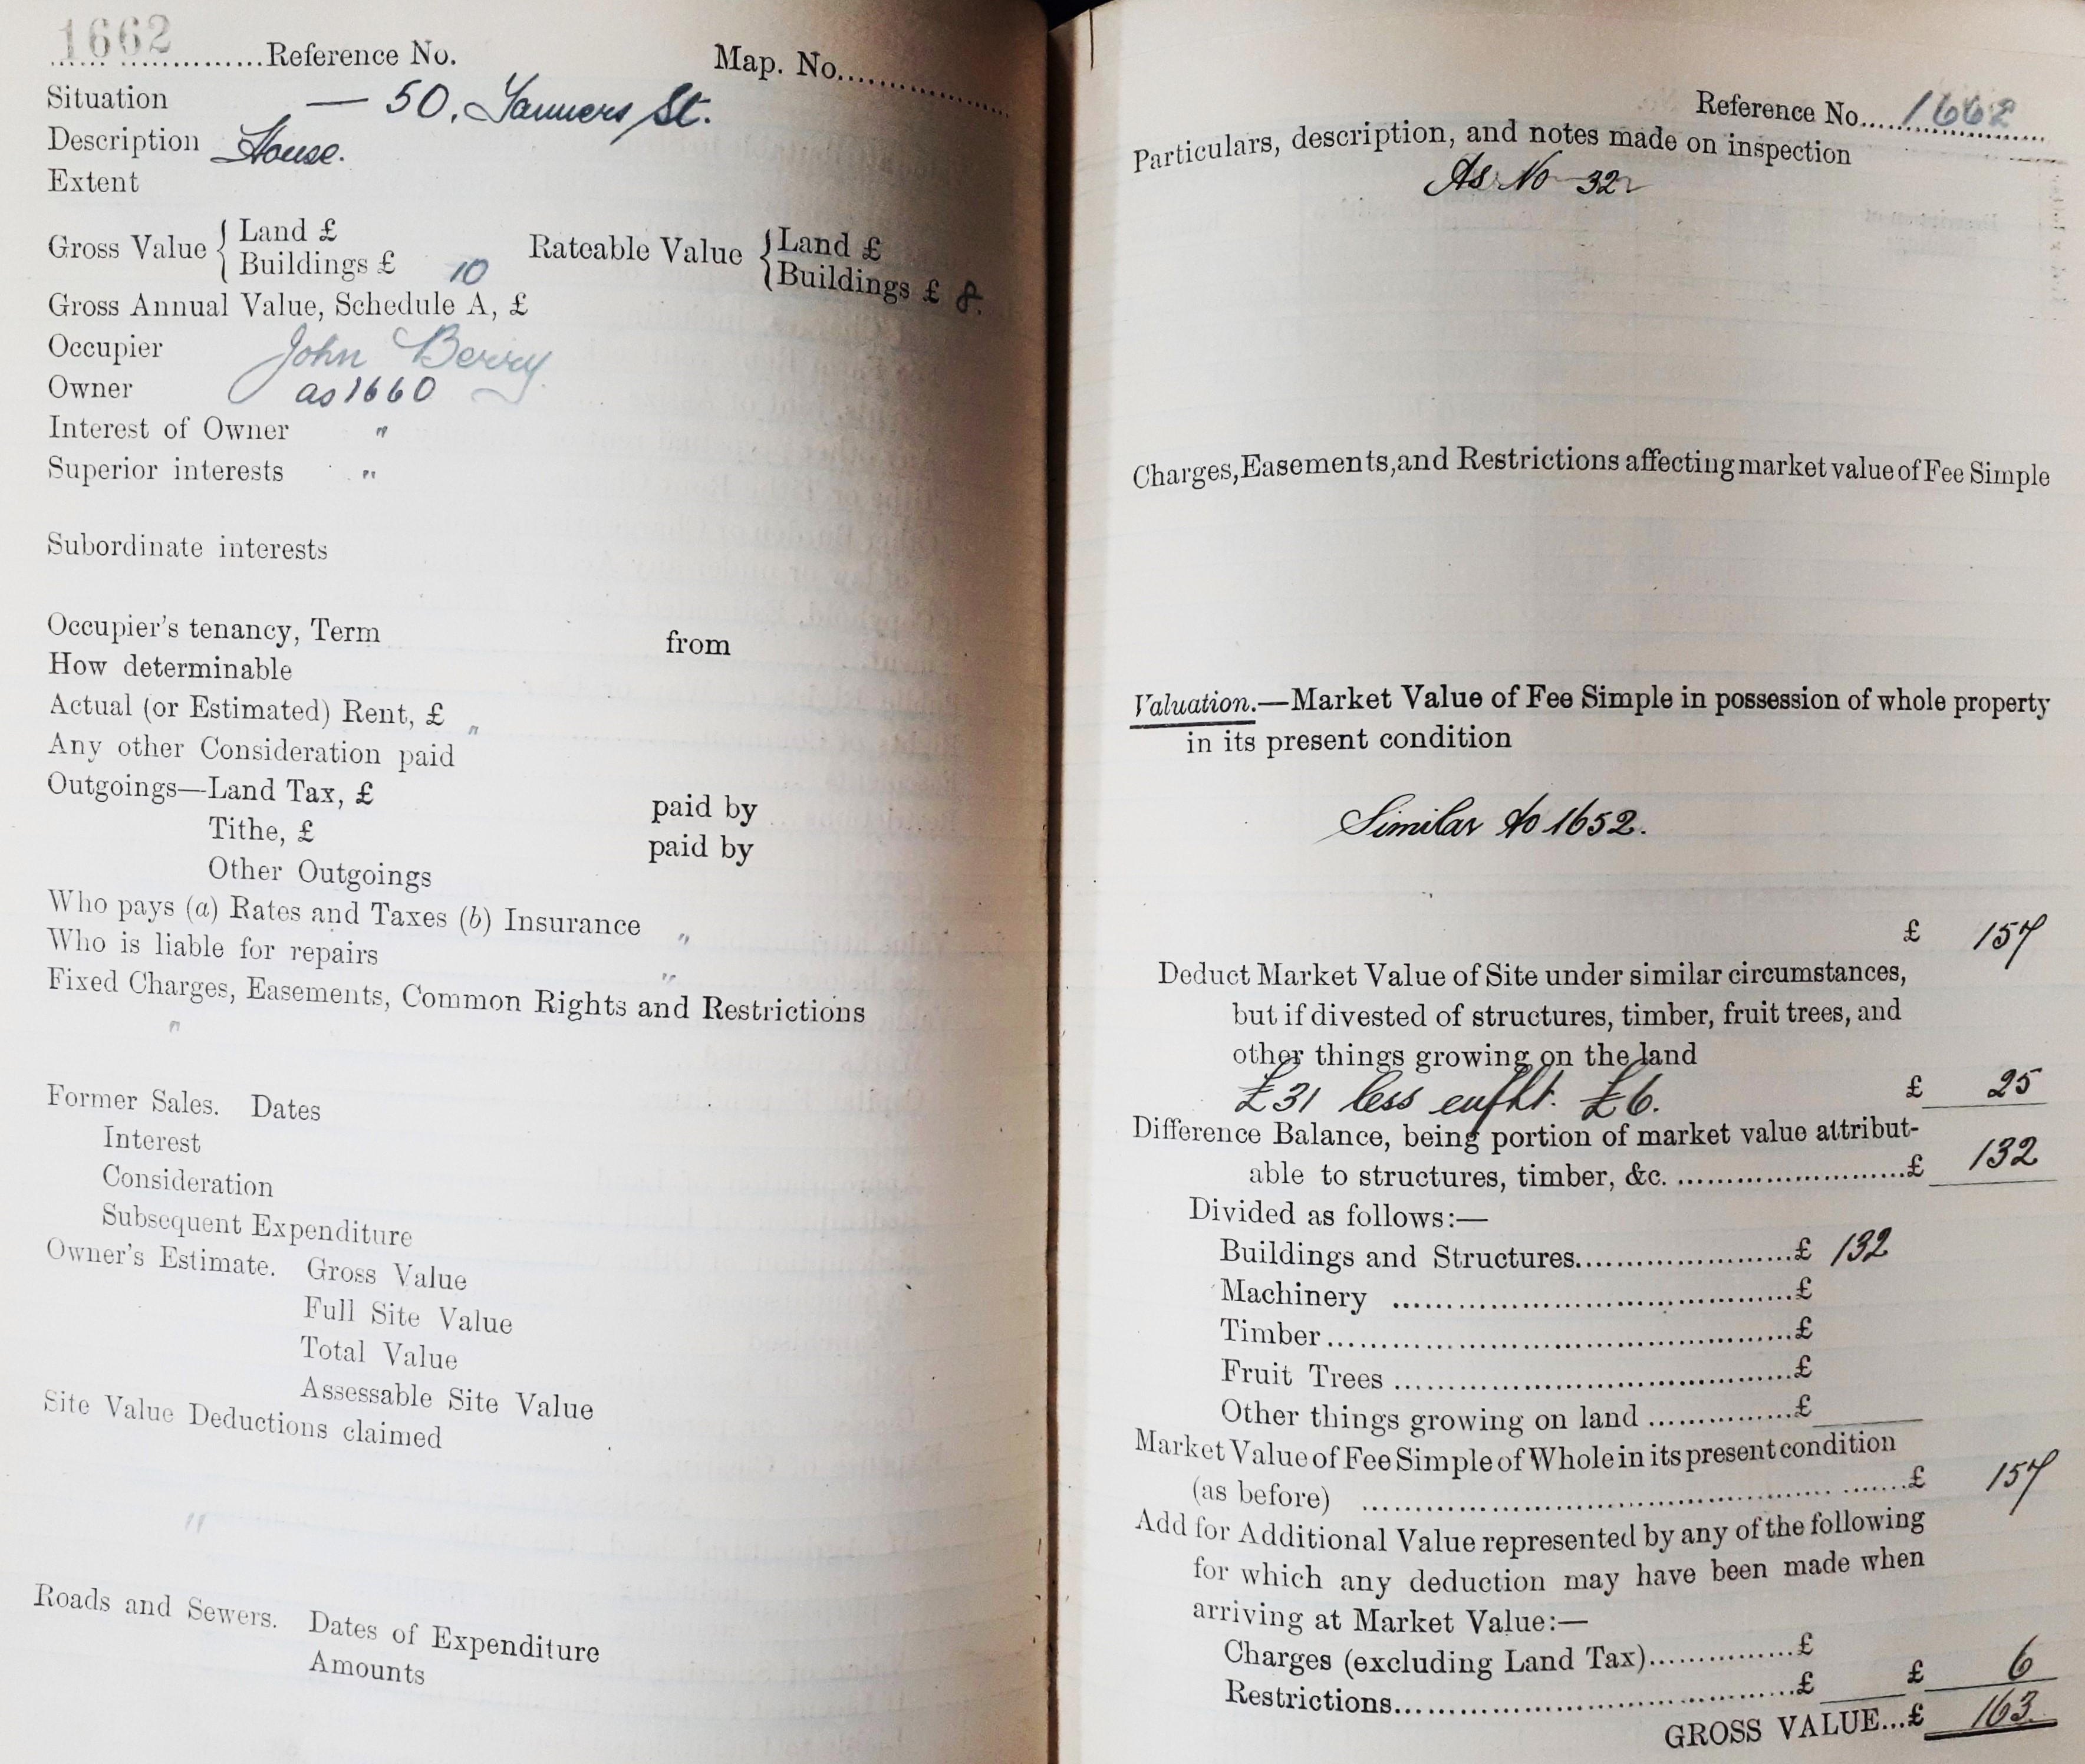 1662
Reference No. Map. No.
Situation — 50, Tanners St.
Description House.
Extent
Gross Value { Land £ Rateable Value { Land £
Buildings £ 10 Buildings £ 8.
Gross Annual Value, Schedule A, £
Occupier John Berry
Owner as 1660
Interest of Owner "
Superior interests "
Subordinate interests
Occupier's tenancy, Term from
How determinable
Actual (or Estimated) Rent, £ "
Any other Consideration paid
Outgoings—Land Tax, £ paid by
Tithe, £ paid by
Other Outgoings
Who pays (a) Rates and Taxes (b) Insurance "
Who is liable for repairs "
Fixed Charges, Easements, Common Rights and Restrictions
"
Former Sales. Dates
Interest
Consideration
Subsequent Expenditure
Owner's Estimate. Gross Value
Full Site Value
Total Value
Assessable Site Value
Site Value Deductions claimed
"
Roads and Sewers. Dates of Expenditure
Amounts
Reference No. 1662
Particulars, description, and notes made on inspection
As No 32
Charges, Easements, and Restrictions affecting market value of Fee Simple
Valuation.—Market Value of Fee Simple in possession of whole property
in its present condition
Similar to 1652.
£ 157
Deduct Market Value of Site under similar circumstances,
but if divested of structures, timber, fruit trees, and
other things growing on the land
£31 less £6. £ 25
Difference Balance, being portion of market value attribut-
able to structures, timber, &c. £ 132
Divided as follows:—
Buildings and Structures £ 132
Machinery £
Timber £
Fruit Trees £
Other things growing on land £
Market Value of Fee Simple of Whole in its present condition
(as before) £ 157
Add for Additional Value represented by any of the following
for which any deduction may have been made when
arriving at Market Value:—
Charges (excluding Land Tax) £
Restrictions £ £ 6
GROSS VALUE...£ 163